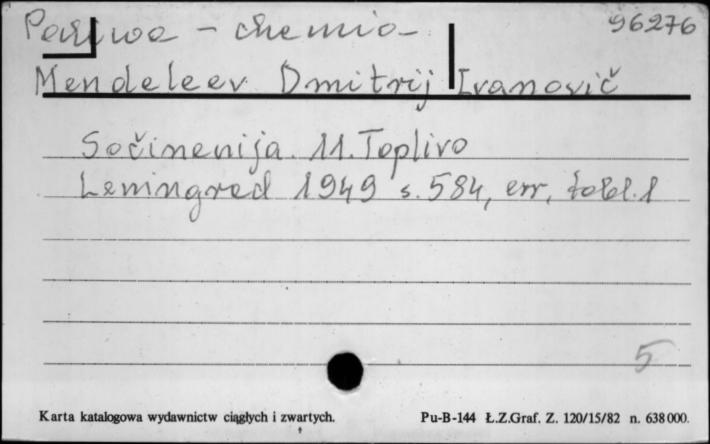 Paliwa - chemia 96276
Mendeleev Dmitrij Ivanovič
Sočinenija. 11. Toplivo
Leningrad 1949 s. 584, err, tabl. 1
5
Karta katalogowa wydawnictw ciągłych i zwartych. Pu-B-144 Ł.Z.Graf. Z. 120/15/82 n. 638000.